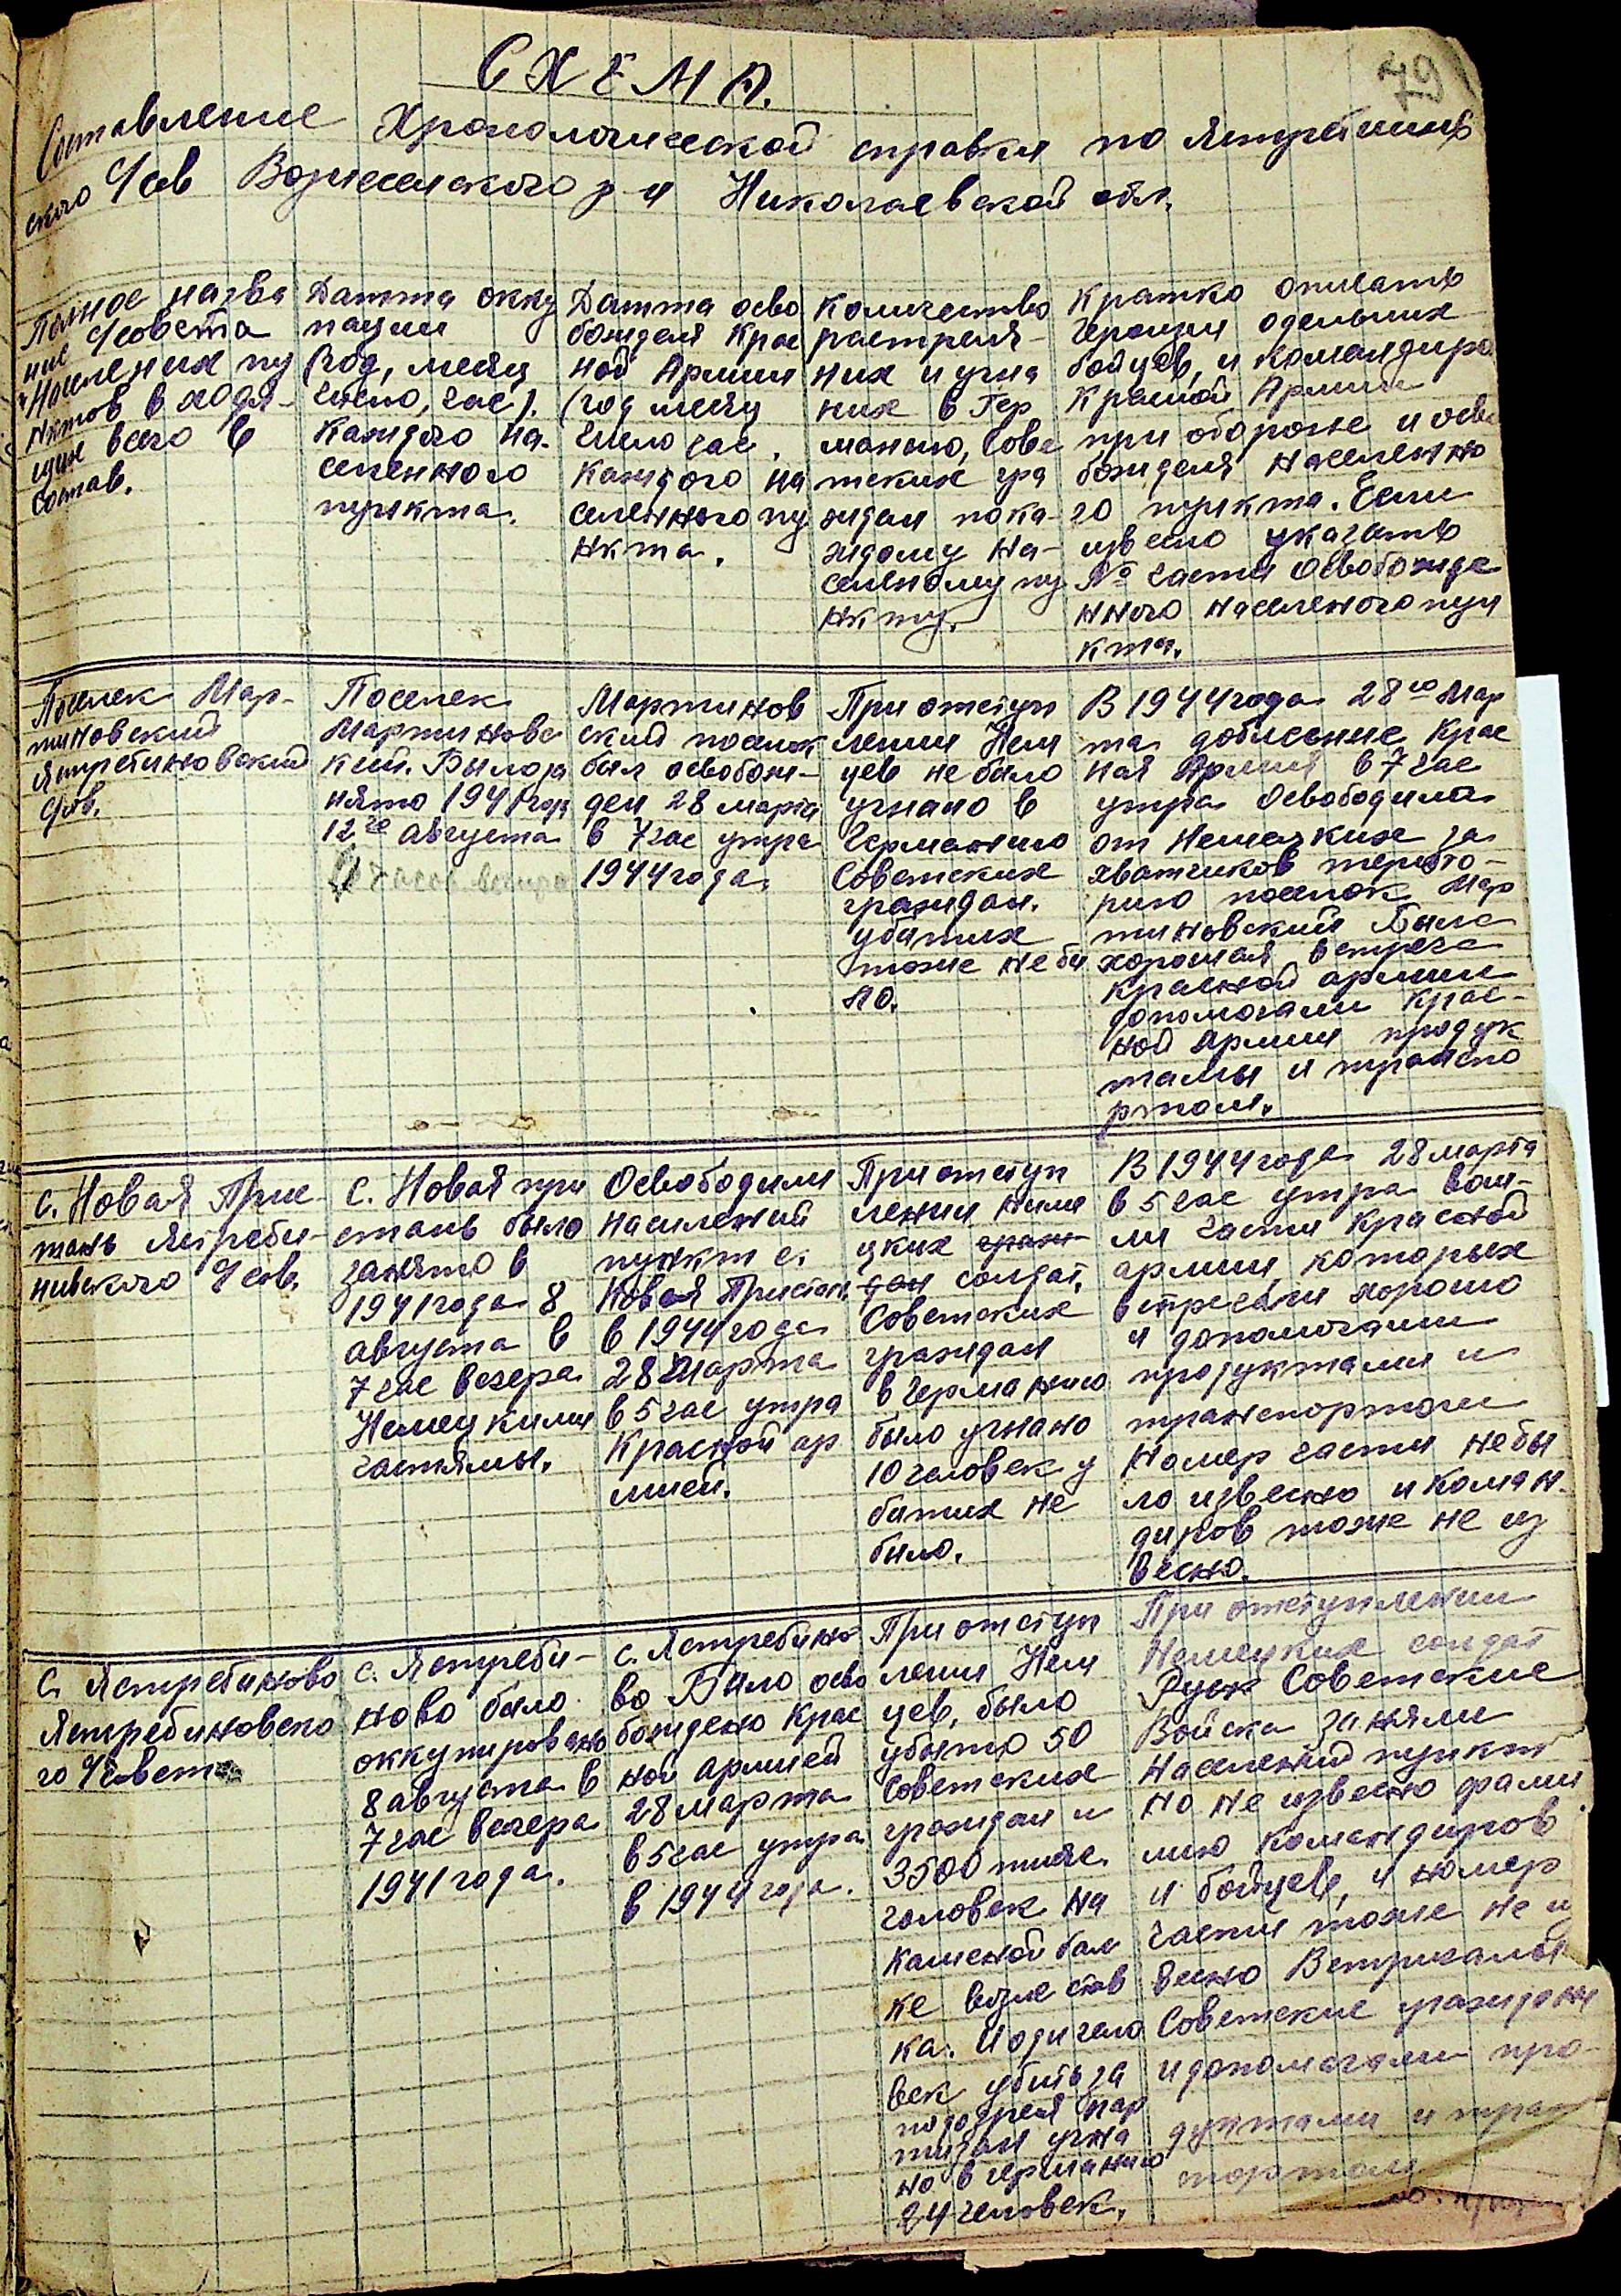 79
СХЕМА.
Составление Хронологической справки по Ястребинов
ского Усов Вознесенского р-н Николаевской обл.
Полное назва
ние Усовета
и Населених пу
нктов в ходя-
щих всего в
состав.
Датта окку
пации
(год, месяц
число, час).
каждого на-
селенного
пункта.
Датта осво
бождения Крас
ной Армии
(год месяц
число час.
каждого на
селенного пу
нкта.
Количество
растреля-
них и угна
них в Гер
манию, Сове
тских гра
ждан пока-
ждому на-
селеному пу
нкту.
Кратко описать
героизм одельних
бойцев, и командиро
Красной Армии
при обороне и осво
бождения населенно
го пункта. Если
извесно указать
№ части освобожде
нного населеного пун
кта.
Поселек Мар-
тиновский
Ястребиновский
Усов.
Поселек
Мартиновс
кий. Было за
нято 1941 года
12го августа
7 часов вечера
Мартинов
ский поселок
был освобож-
ден 28 марта
в 7 час утра
1944 года.
При отступ
лении Нем
цев не было
угнано в
Германию
Советских
граждан.
убитих
тоже не бы
ло.
В 1944 года 28го Мар
та доблесние Крас
ная Армия в 7 час
утра освободила
от Немецких за
хватчиков терито-
рию поселок Мар
тиновский Была
хорошая встреча
красной армии
допомогали Крас-
ной Армии продук
тамы и транспо
ртом.
с. Новая При
тань Ястреби-
нивского Усов.
с. Новая при
стань было
занято в
1941 года 8
августа в
7 час вечера
Немецкими
частямы.
Освободили
населений
пункт с.
Новая Пристан.
в 1944 года
28 Марта
в 5 час утра
Красной ар
мией.
При отступ
лении Неме
цких граж-
дан солдат.
Советских
граждан
в Германию
было угнано
10 человек у
битих не
било.
В 1944 года 28 марта
в 5 час утра вош-
ли части Красной
армии, которых
встречали хорошо
и допомогали
продуктами и
транспортом
Номер части не бы
ло извесно и коман-
диров тоже не из
весно.
С. Ястребиново
Ястребиновско
го Усовета
с. Ястреби-
ново было
оккупировано
8 августа в
7 час вечера
1941 года.
с. Ястребино
во Было осво
бождено Крас
ной армией
28 марта
в 5 час утра
в 1944 года.
При отступ
лении Нем
цев, было
убыто 50
Советских
граждан и
3500 тисяч.
человек на
каменой бал
ке возле став
ка. И один чело
век убить за
подозреня пар
тизан угна
но в германию
24 человек.
При отступлении
Немецких солдат
Руск Советские
Войска заняли
Населений пункт
но не извесно фами
лию командиров
и бойцев, и номер
части тоже не из
весно Встричалы
Советские граждани
и допомогали про-
дуктами и тран
портом